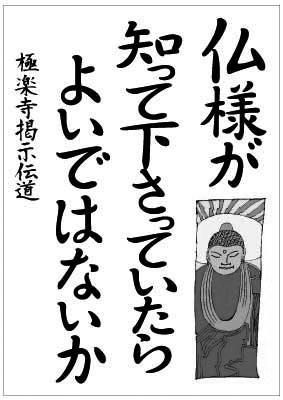 仏様が
知って下さっていたら
よいではないか
極楽寺掲示伝道